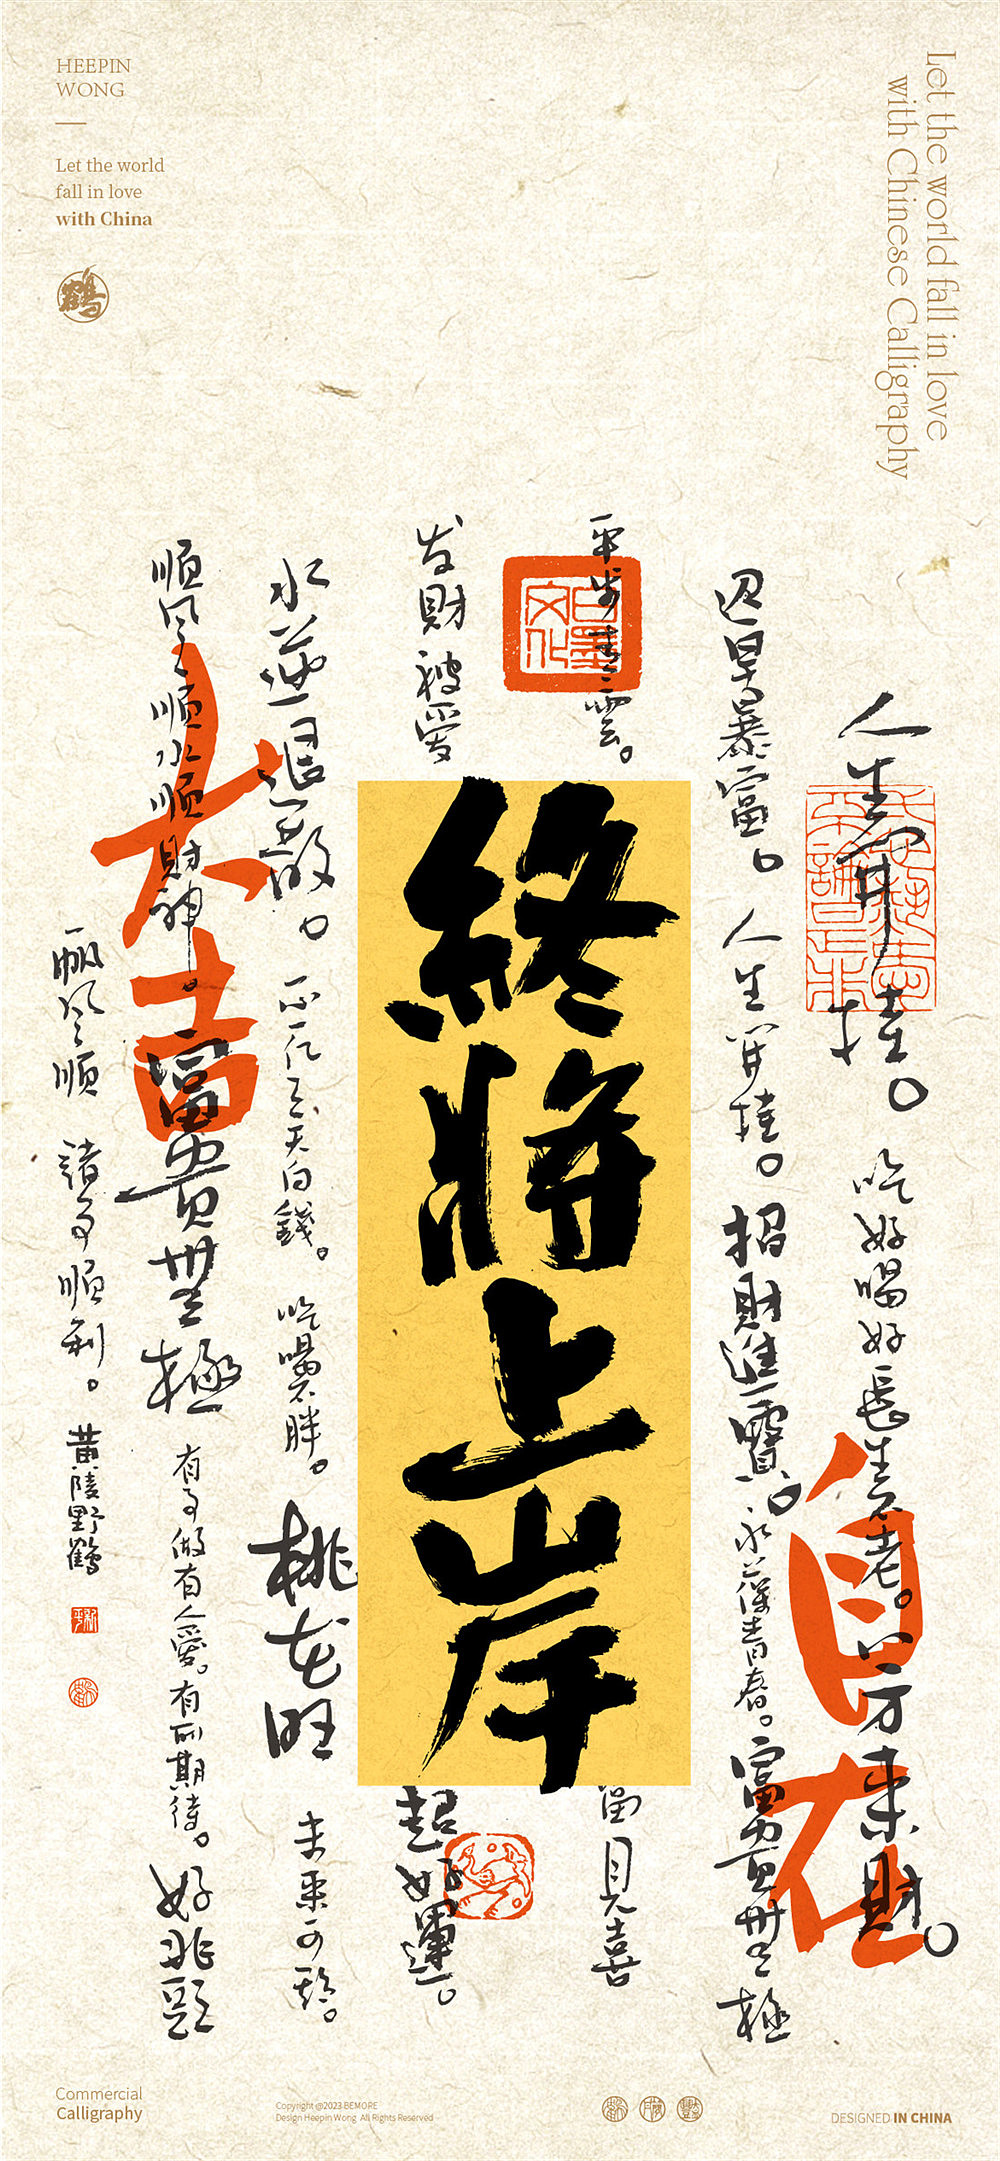 HEEPIN
WONG
Let the world
fall in love
with China
鶴
Let the world fall in love
with Chinese Calligraphy
人生開掛。吃好喝好長生不老。八方來財。
自在
迎早暴富。人生開掛。招財進寶。永葆青春。富貴無極
平步青雲。
白墨文化
終將上岸
見喜
发財被愛
超好運。
水逆退散。
不胖。桃花旺
未来可期。
順風順水順財神。富貴無極
大吉
有事做有人愛。有所期待。好兆頭
帆風順 諸事順利。黄陵野鶴
Commercial
Calligraphy
Copyright @2023 BEMORE
Design Heepin Wong All Rights Reserved
DESIGNED IN CHINA